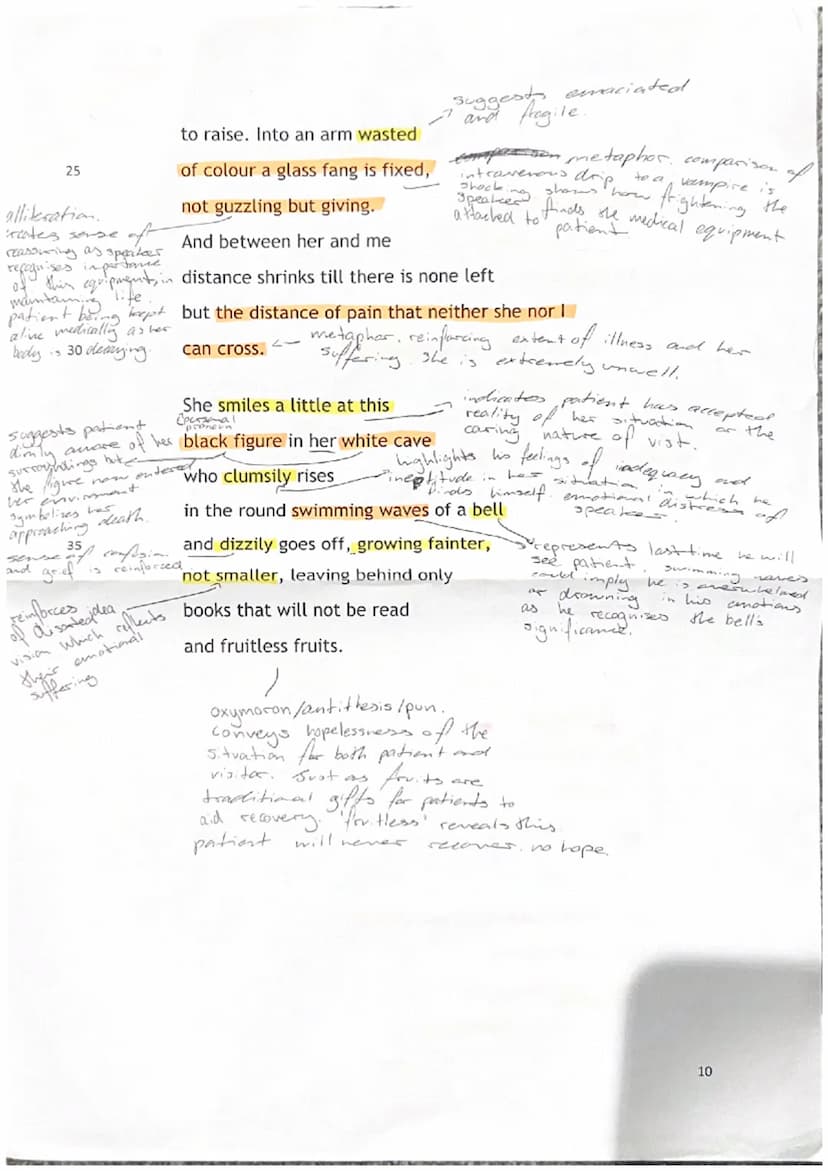 suggests emaciated
and fragile.
to raise. Into an arm wasted
25
of colour a glass fang is fixed,
not guzzling but giving.
metaphor. comparison of
intravenous drip to a vampire is
shocking shows how frightening the
speaker finds the medical equipment
attached to patient
alliteration.
creates sense of
reassuring as speaker
recognises importance
of this equipment in
maintaining life.
patient being kept
alive medically as her
body is decaying.
And between her and me
distance shrinks till there is none left
but the distance of pain that neither she nor I
30
can cross.
metaphor. reinforcing extent of illness and her
suffering. She is extremely unwell.
She smiles a little at this
indicates patient has accepted
reality of her situation or the
caring nature of vist.
personal
pronoun
black figure in her white cave
suggests patient
dimly aware of her
surroundings but
the figure now entered
her environment
symbolises her
approaching death.
who clumsily rises
highlights his feelings of inadequacy and
ineptitude in her situation in which he
finds himself. emotional distress of
speaker.
in the round swimming waves of a bell
35
and dizzily goes off, growing fainter,
sense of confusion
and grief is reinforced
represents last time he will
see patient. swimming waves
could imply he is overwhelmed
or drowning in his emotions
as he recognises the bell's
significance.
not smaller, leaving behind only
reinforces idea
of distorted
vision which reflects
their emotional
suffering
books that will not be read
and fruitless fruits.
oxymoron/antithesis/pun.
conveys hopelessness of the
situation for both patient and
visitor. Just as fruits are
traditional gifts for patients to
aid recovery. 'fruitless' reveals this
patient will never recover. no hope.
10